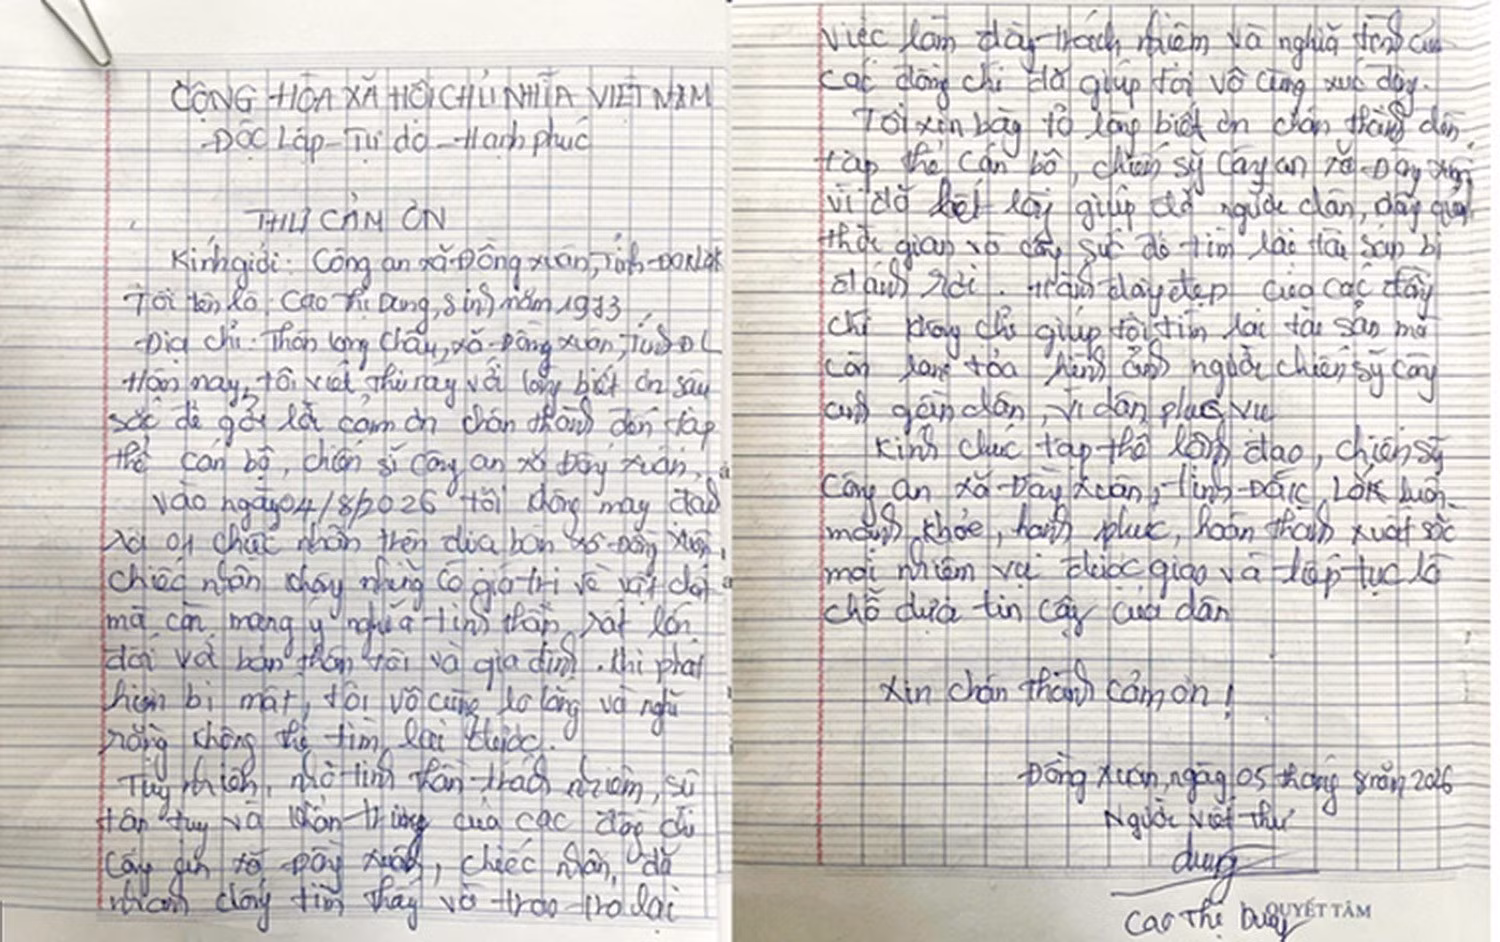 CỘNG HÒA XÃ HỘI CHỦ NGHĨA VIỆT NAM
Độc Lập - Tự do - Hạnh phúc
THƯ CẢM ƠN
Kính giởi: Công an xã Đồng Xuân, Tỉnh Đắk Lắk
Tôi tên là: Cao Thị Dung, sinh năm 1973
Địa chỉ: Thôn Long Châu, xã Đồng Xuân, Tỉnh ĐL
Hôm nay, tôi viết thư này với lòng biết ơn sâu
sắc để gởi lời cảm ơn chân thành đến tập
thể cán bộ, chiến sĩ công an xã Đồng Xuân.
Vào ngày 04/8/2026 tôi không may đánh
rơi 01 chiếc nhẫn trên địa bàn xã Đồng Xuân,
chiếc nhẫn không những có giá trị về vật chất
mà còn mang ý nghĩa tinh thần rất lớn
đối với bản thân tôi và gia đình. Khi phát
hiện bị mất, tôi vô cùng lo lắng và nghĩ
rằng không thể tìm lại được.
Tuy nhiên, nhờ tinh thần trách nhiệm, sự
tận tụy và khẩn trương của các đồng chí
Công an xã Đồng Xuân, chiếc nhẫn đã
nhanh chóng tìm thấy và trao trả lại
việc làm đầy trách nhiệm và nghĩa tình của
các đồng chí đã giúp tôi vô cùng xúc động.
Tôi xin bày tỏ lòng biết ơn chân thành đến
tập thể cán bộ, chiến sỹ Công an xã Đồng Xuân
vì đã hết lòng giúp đỡ người dân,
thời gian và công sức để tìm lại tài sản bị
đánh rơi. Hành động đẹp của các đồng
chí không chỉ giúp tôi tìm lại tài sản mà
còn lan tỏa hình ảnh người chiến sỹ công
an gần dân, vì dân phục vụ
Kính chúc tập thể lãnh đạo, chiến sỹ
Công an xã Đồng Xuân, tỉnh Đắk Lắk luôn
mạnh khỏe, hạnh phúc, hoàn thành xuất sắc
mọi nhiệm vụ được giao và tiếp tục là
chỗ dựa tin cậy của dân
Xin chân thành cảm ơn!
Đồng Xuân, ngày 05 tháng 8 năm 2026
Người viết thư
dung
Cao Thị Dung
QUYẾT TÂM